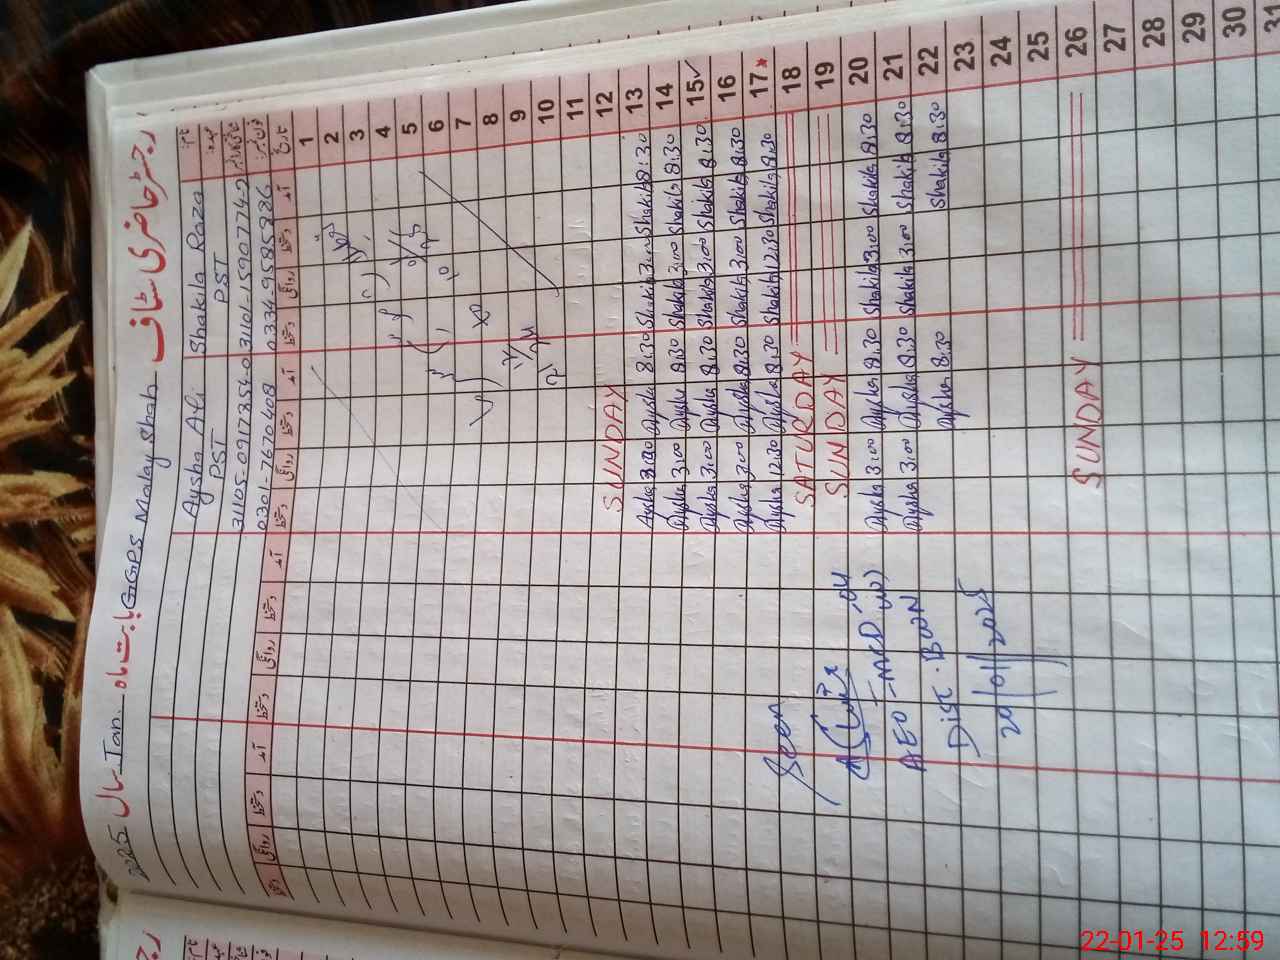 رجسٹر حاضری سٹاف GGPS Malay Shah بابت ماہ Jan. سال 2025
نام Shakila Raza Aysha Ali
عہدہ PST PST
شناختی کارڈ نمبر 31101-1590774-2 31105-0917854-0
فون نمبر 0334-9585886 0301-7670408
تاریخ آمد دستخط روانگی دستخط آمد دستخط روانگی دستخط آمد دستخط روانگی دستخط آمد دستخط روانگی دستخط
1
2
3
4
5
6
7
8
9
10
11
12 SUNDAY
13 8:30 Shakila 3:00 Shakila 8:30 Aysha 3:00 Aysha
14 8:30 Shakila 3:00 Shakila 8:30 Aysha 3:00 Aysha
15 8:30 Shakila 3:00 Shakila 8:30 Aysha 3:00 Aysha
16 8:30 Shakila 3:00 Shakila 8:30 Aysha 3:00 Aysha
17 8:30 Shakila 12:30 Shakila 8:30 Aysha 12:30 Aysha
18 SATURDAY
19 SUNDAY
20 8:30 Shakila 3:00 Shakila 8:30 Aysha 3:00 Aysha
21 8:30 Shakila 3:00 Shakila 8:30 Aysha 3:00 Aysha
22 8:30 Shakila 8:30 Aysha
23
24
25
26 SUNDAY
27
28
29
30
31
Seen
AEO
Dist.
20/01/2025
22-01-25 12:59